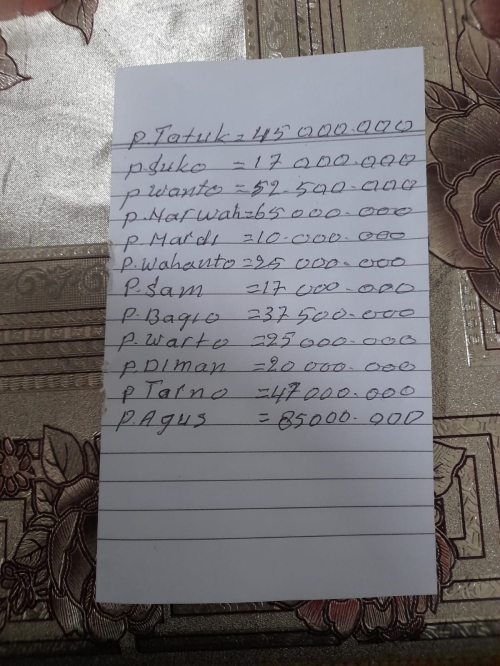 P.Tatuk = 45 000.000
P Suko = 17 000.000
P Wanto = 52.500.000
P.Marwah = 65 000.000
P. Mardi = 10.000.000
P.Wahanto = 25 000.000
P.Sam = 17 000.000
P.Bagio = 37500.000
P.Warto = 25000.000
P.Diman = 20 000.000
P Tarno = 47000.000
P.Agus = 85000.000